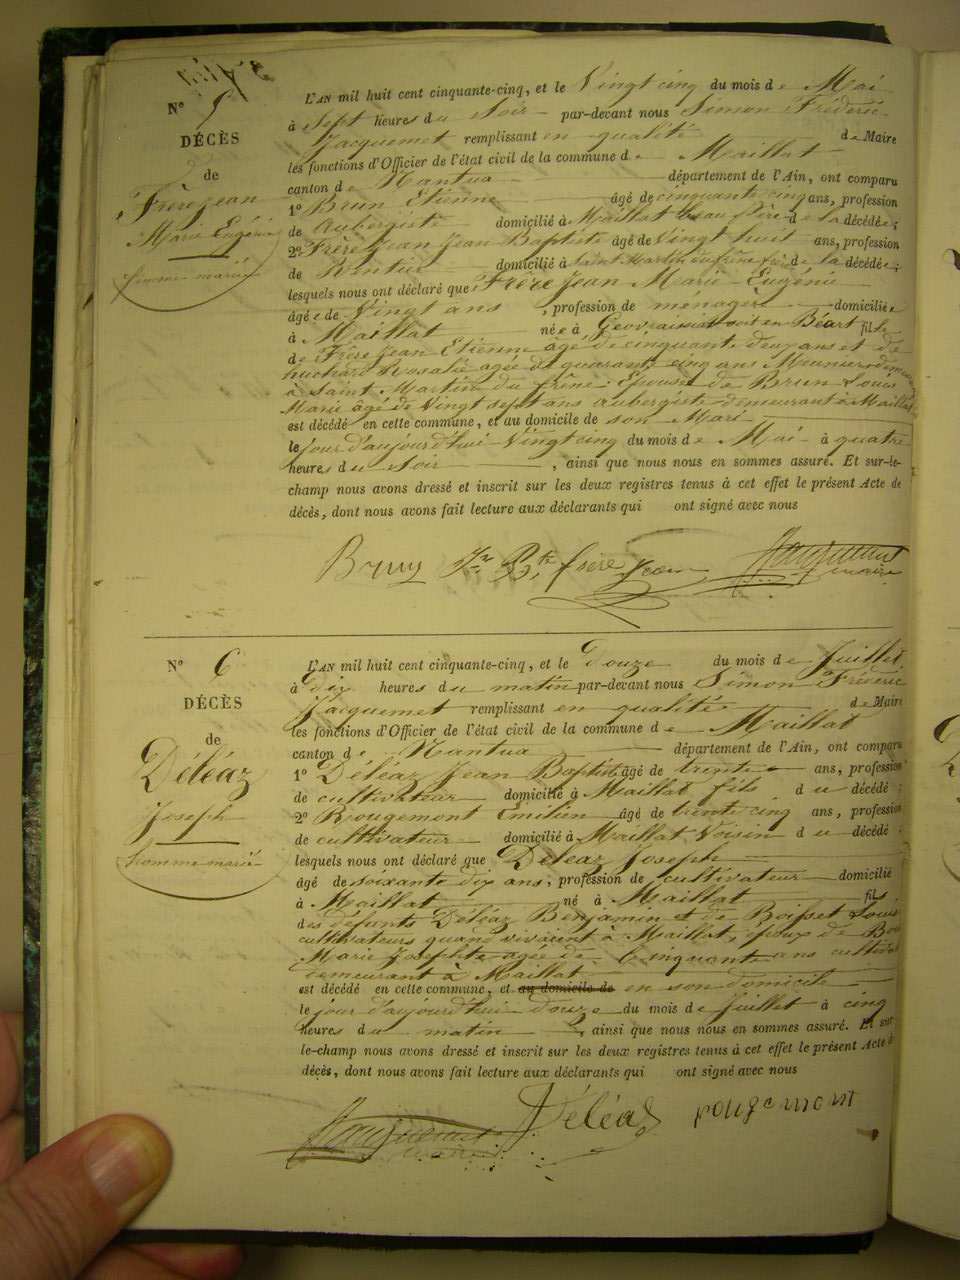 N° 5
DÉCÈS
de
Frèrejean
Marie Eugénie
femme mariée
L'AN mil huit cent cinquante-cinq, et le Vingt cinq du mois de Mai
à Sept heures du Soir par-devant nous Simon Fréderic
Jacquemet remplissant en qualité de Maire
les fonctions d'Officier de l'état civil de la commune de Maillat
canton de Nantua département de l'Ain, ont comparu
1° Brun Etienne âgé de cinquante cinq ans, profession
de Aubergiste domicilié à Maillat beau père de la décédée;
2° Frère Jean Jean Baptiste âgé de Vingt huit ans, profession
de Rentier domicilié à Saint Martin du frêne frère de la décédée;
lesquels nous ont déclaré que Frère Jean Marie Eugénie
âgée de Vingt ans, profession de menagère domiciliée
à Maillat née à Geovraissiat soit en Béart fille
de Frère Jean Etienne âgé de cinquante deux ans et de
huchard Rosalie agée de quarante cinq ans Meunier demeurant
à Saint Martin du frêne; Epouse de Brun Louis
Marie âgé de Vingt sept ans aubergiste demeurant à Maillat
est décédé en cette commune, et au domicile de son Mari
le jour d'aujourd'hui Vingt cinq du mois de Mai à quatre
heures du Soir, ainsi que nous nous en sommes assuré. Et sur-le-
champ nous avons dressé et inscrit sur les deux registres tenus à cet effet le présent Acte de
décès, dont nous avons fait lecture aux déclarants qui ont signé avec nous
Brun Jn Bte frère Jean Jacquemet
maire
N° 6
DÉCÈS
de
Déléaz
Joseph
homme marié
L'AN mil huit cent cinquante-cinq, et le Douze du mois de Juillet
à Dix heures du matin par-devant nous Simon Fréderic
Jacquemet remplissant en qualité de Maire
les fonctions d'Officier de l'état civil de la commune de Maillat
canton de Nantua département de l'Ain, ont comparu
1° Déléaz Jean Baptiste âgé de trente ans, profession
de cultivateur domicilié à Maillat fils du décédé;
2° Rougemont Emilien âgé de trente cinq ans, profession
de cultivateur domicilié à Maillat Voisin du décédé;
lesquels nous ont déclaré que Déléaz Joseph
âgé de soixante dix ans, profession de cultivateur domicilié
à Maillat né à Maillat fils
des défunts Déléaz Benjamin et de Boisset Louise
cultivateurs quand vivaient à Maillat, époux de
Marie Josephte agée de Cinquante ans
demeurant à Maillat
est décédé en cette commune, et au domicile de en son domicile
le jour d'aujourd'hui douze du mois de Juillet à cinq
heures du matin, ainsi que nous nous en sommes assuré. Et sur
le-champ nous avons dressé et inscrit sur les deux registres tenus à cet effet le présent Acte d
décès, dont nous avons fait lecture aux déclarants qui ont signé avec nous
Jacquemet Déléaz rougemont
maire